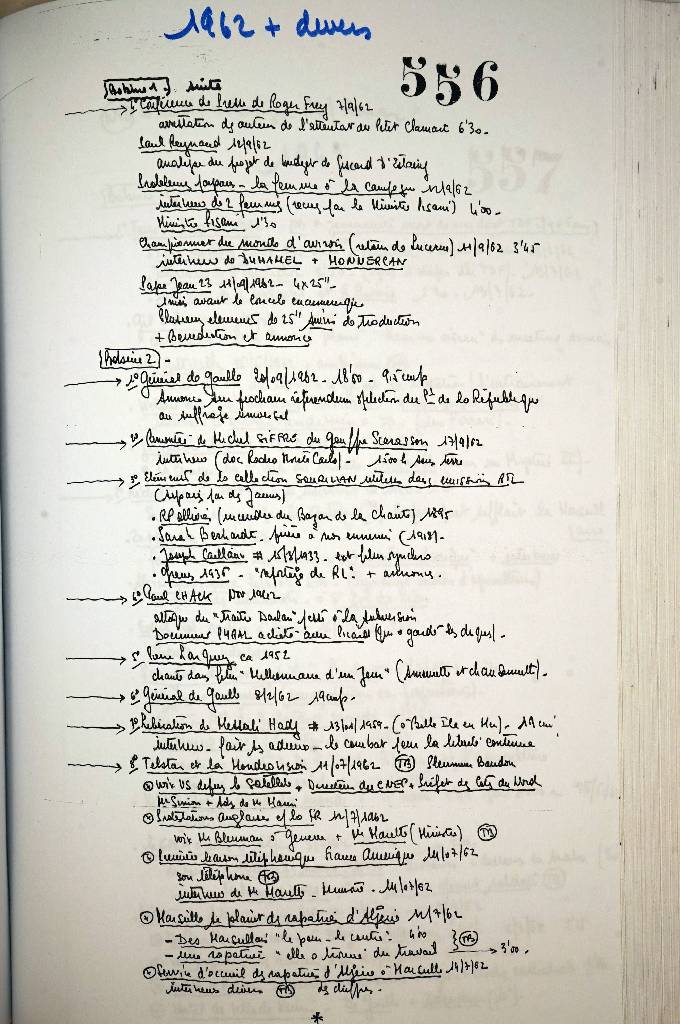 1962 + divers
556
Bobine 1 - suite
1° Conférence de Presse de Roger Frey 7/9/62
arrestation ds auteurs de l'attentat du Petit Clamart 6'30 -
Paul Reynaud 12/9/62
analyse du projet de budget de Giscard d'Estaing
Problèmes paysans - la femme à la campagne 12/9/62
interview de 2 femmes (reçues par le Ministre Pisani) 4'00 -
Ministre Pisani 1'30
Championnat du monde d'aviron (retour de Lucerne) 11/9/62 3'45
interview de DUHAMEL + MONNEREAU
Pape Jean 23 11/09/1962 - 4x25"
1 mois avant le Concile oecuménique
Plusieurs éléments de 25" suivi de traduction
+ Bénédiction et annonce
Bobine 2 -
1° Général de Gaulle 20/09/1962 - 18'00 - 9,5 cm/s
Annonce sur prochain référendum & élection du Pt de la République
au suffrage universel
2° Remontée de Michel SIFFRE du gouffre Scarasson 17/9/62
interview (doc Radio Monte Carlo) - 1500 h sous terre
3° Eléments de la collection utilisés dans émission RTL
(réparés par ds James)
• RP Ollivier (incendie du Bazar de la Charité) 1895
• Sarah Bernhardt - prière à nos ennemis (1918) -
• Joseph Caillaux # 15/8/1933 - ext film synchro
• Grèves 1936 - "reportage de RL" + annonces -
4° Paul CHACK Nov 1942
attaque du "traître Darlan" passé à la subversion
Document acheté avec Picard (qui a gardé les disques) -
5° Pierre Larquey ca 1952
chante dans film "Millionnaire d'un Jour" (Amourette et chansonnette) -
6° Général de Gaulle 8/2/62 19 cm/s -
7° Libération de Messali Hadj # 13/01/1959 - (à Belle Ile en Mer) - 19 cm/
interview - fait ss adieux - le combat pour la liberté continue
8° Telstar et la Mondovision 11/07/1962 TB Pleumeur Bodou
voix US depuis le Satellite + Directeur du CNET + Préfet ds Côtes du Nord
Mr Simon + Mr Marin
Protestations anglaises c/ la FR 12/7/1962
voix Mr Bleuman à Genève + Mr Marette (Ministre) TB
Première liaison téléphonique France Amérique 11/07/62
son téléphone TB
interview de Mr Marette - Ministre - 11/07/62
Marseille se plaint ds rapatriés d'Algérie 11/7/62
- Des Marseillais "le pour - le contre" 4'00
- une rapatriée "elle a trouvé du travail" TB → 3'00 -
Service d'accueil ds rapatriés d'Algérie à Marseille 14/7/62
interviews divers TB ds chiffres -
*